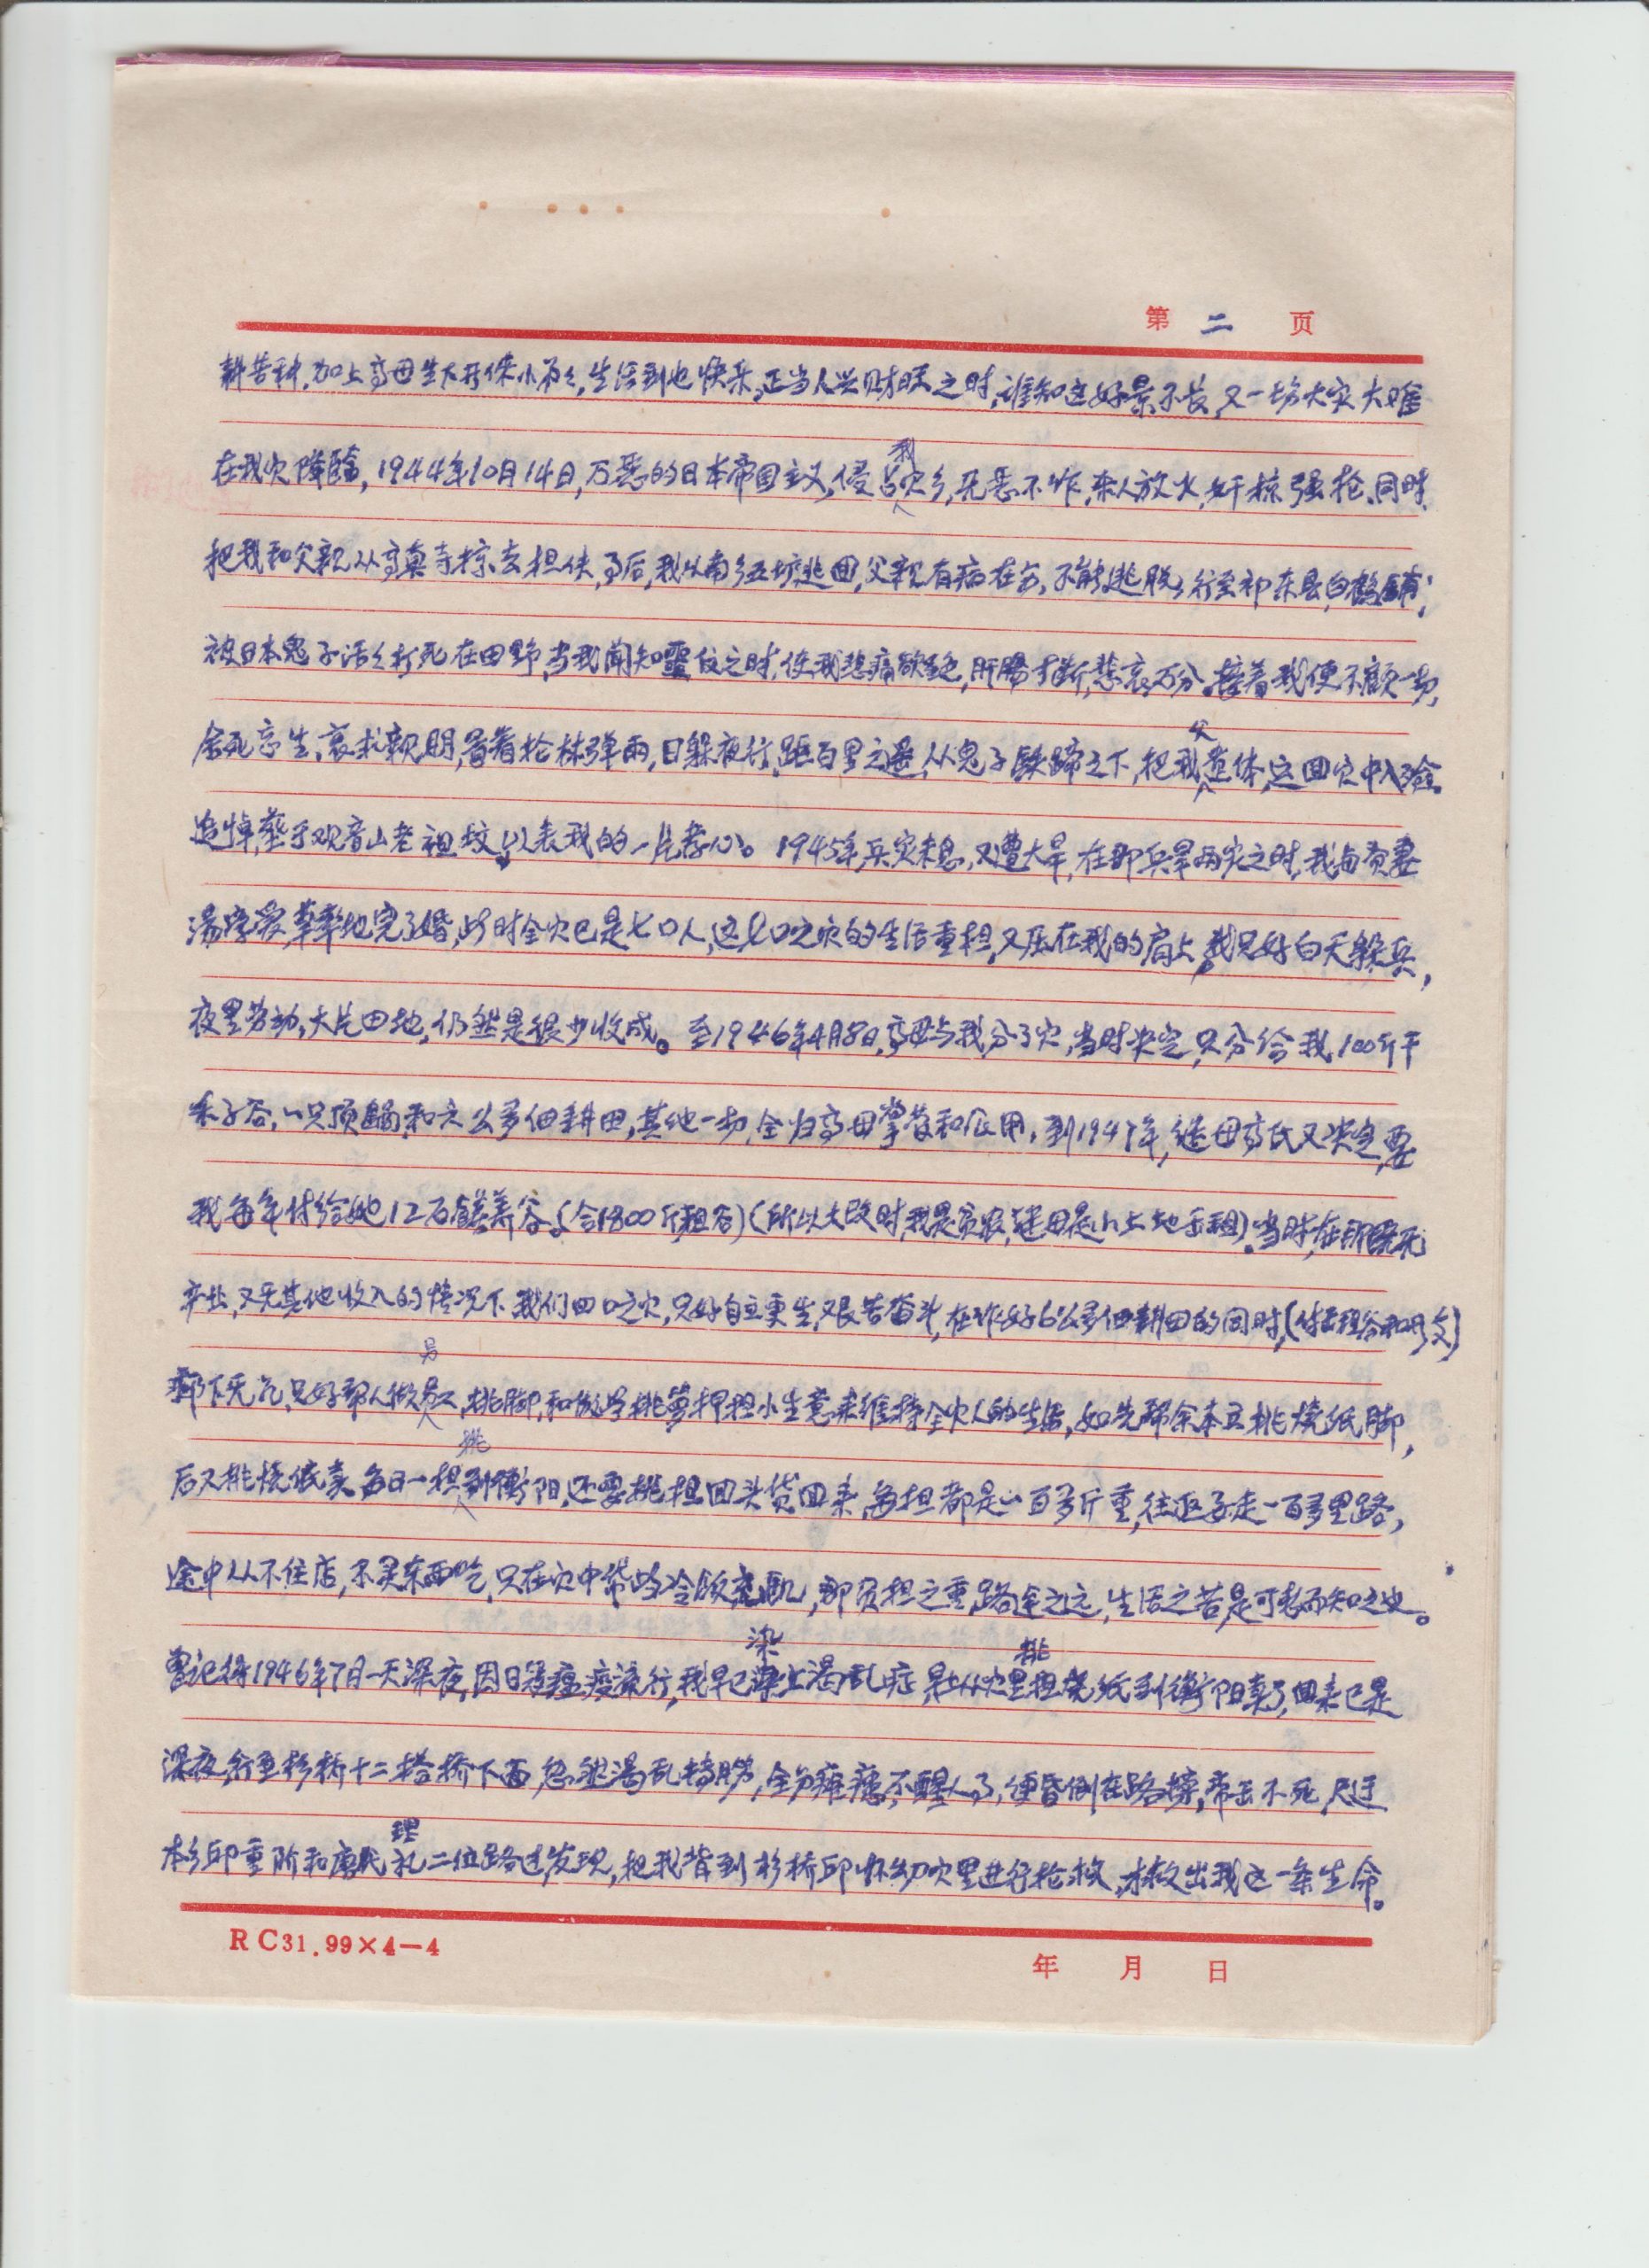 第 二 页
耕苦种,加上高母生下开俫小弟弟,生活到也快乐,正当人兴财旺之时,谁知这好景不长,又一场大灾大难
在我家降临,1944年10月14日,万恶的日本帝国主义,侵占我家乡,无恶不作,杀人放火,奸掠强抢,同时,
把我和父亲从高真寺掠去担俠,事后,我从南乡五塘逃回,父亲有病在身,不能逃脱,行至祁东县白鹤铺,
被日本鬼子活活打死在田野,当我闻知噩信之时,使我悲痛欲绝,肝肠寸断,悲哀万分,接着我便不顾一切,
舍死忘生,哀求亲朋,冒着枪林弹雨,日躲夜行,距百里之遥,从鬼子铁蹄之下,把我父遗体,运回家中入殓
追悼,葬于观音山老祖坟,以表我的一片孝心。1945年,兵灾未息,又遭大旱,在那兵旱两灾之时,我与贤妻
汤淳爱,草率地完了婚,此时全家已是七口人,这七口之家的生活重担,又压在我的肩上,我只好白天躲兵,
夜里劳动,大片田地,仍然是很少收成。至1946年4月8日,高母与我分了家,当时决定,只分给我100斤干
禾子谷,一只顶锅,和六公多佃耕田,其他一切,全归高母掌管和应用,到1947年,继母高氏又决定,要
我每年付给她12石赡养谷,(合1800斤租谷)(所以土改时,我是贫农,继母是小土地出租)。当时,在所既无
产业,又无其他收入的情况下,我们四口之家,只好自立更生,艰苦奋斗,在作好6公多佃耕田的同时,(付去租谷和所交)
剩下无几,只好帮人做另工,挑脚,和做学挑箩押担小生意来维持全家人的生活,如先帮余本立挑烧纸脚,
后又挑烧纸卖,每日一担挑到衡阳,还要挑担回头货回来,每担都是一百多斤重,往返要走一百多里路,
途中从不住店,不买东西吃,只在家中带些冷饭充饥,那负担之重,路途之远,生活之苦,是可想而知之也。
曾记得1946年7月一天深夜,因日寇瘟疫流行,我早已染上渴乱症,早上从家里挑担烧纸到衡阳卖了,回来已是
深夜,行至杉桥十二塔桥下面,忽然渴乱转剧,全身瘫痪,不醒人事,便昏倒在路旁,带去不死,只过
本乡邱重阶和唐民礼理二位路过发现,把我背到杉桥邱怀幼家里进行抢救,才救出我这一条生命。
RC31.99×4—4
年 月 日